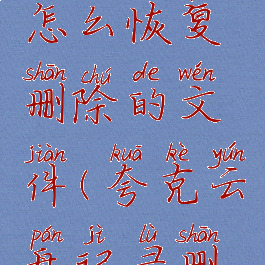 怎么恢复
shān chú de wén
删除的文
jiàn kuā kè yún
件(夸克云
pán jì lù shān
盘记录删